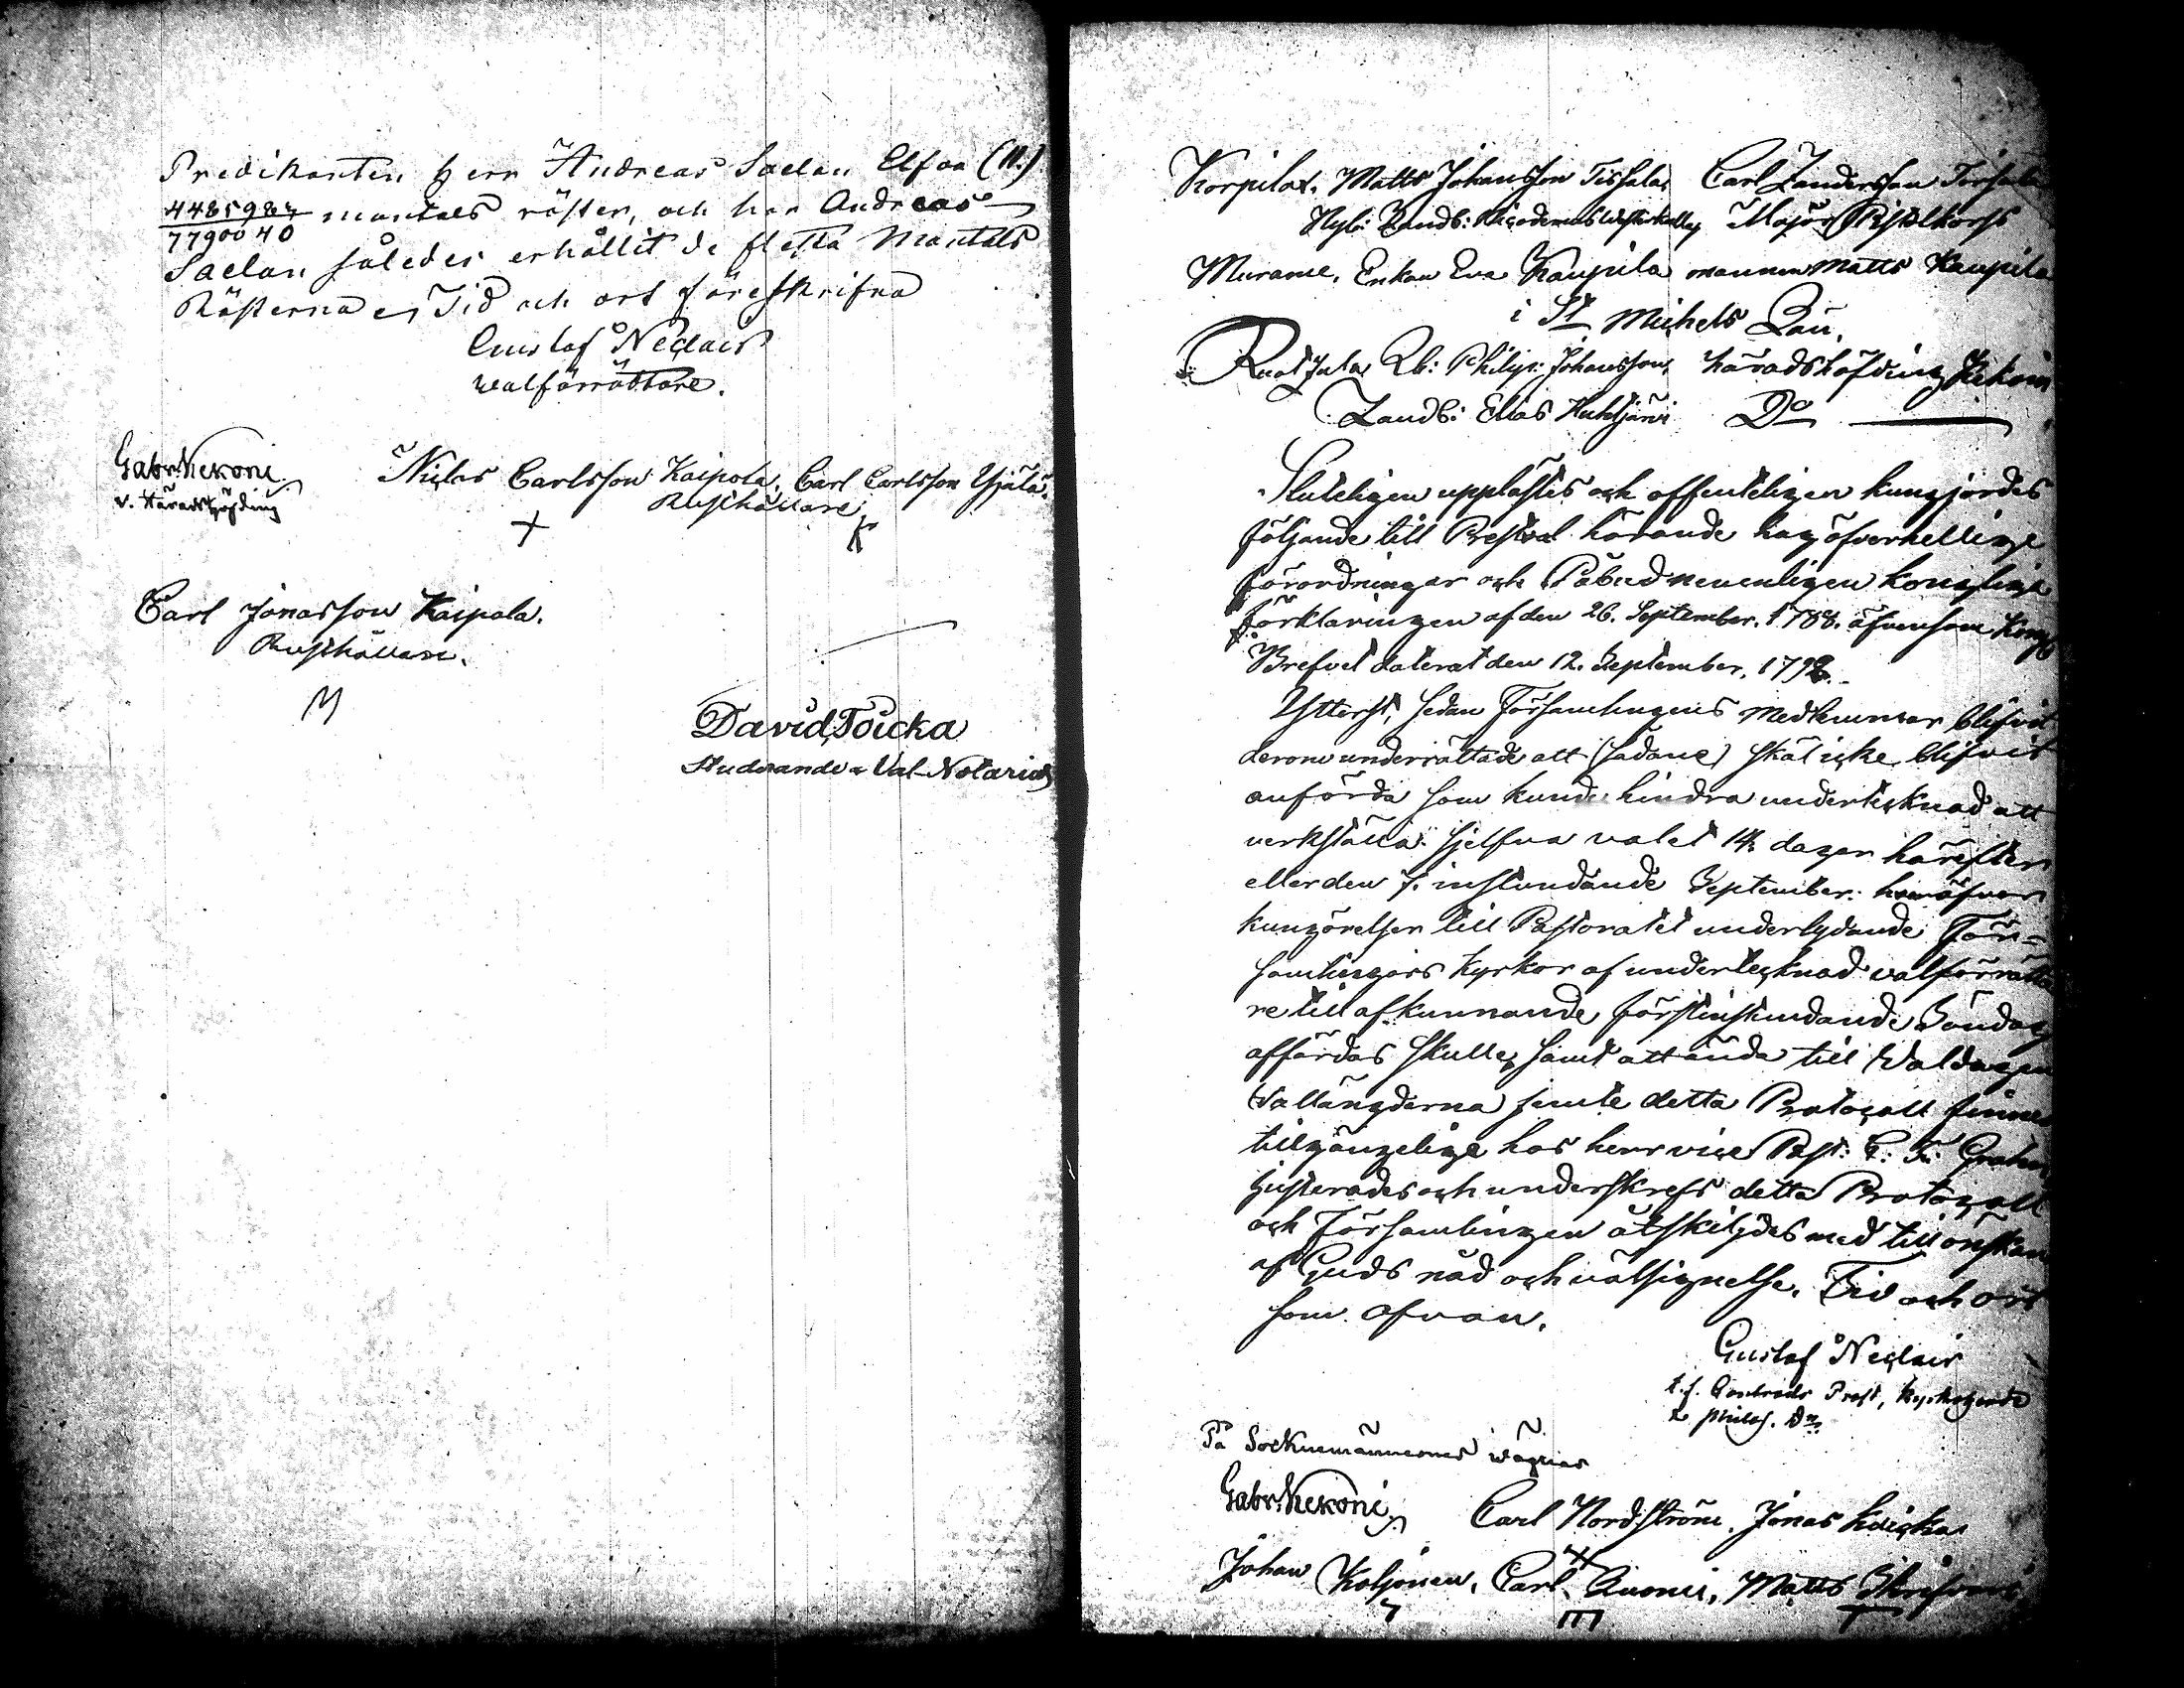 Predikanten herr Andreas Saelan Elfva (11.)
4485983/7790040 mantals röster, och har Andreas
Saelan således erhållit de flesta Mantals
Rösterna, Tid och ort föreskrifna
Gustaf Neclair
walförrättare.
Gabr. Kekoni
v. Häradshöfding
Niclas Carlsson Kaipola, Carl Carlsson Yjälä.
Rusthållare
Carl Jonasson Kaipola.
Rusthållare.
David Toicka
Studerande, Val-Notarius
Korpilax, Matts Johansson Tissala, Carl Zandersson Tissala
Nyb: Landb: Nicodemus Westerkulla, Major Pistolkors
Murame, Enkan Eva Kaupila mannen Matts Kaupila
i St Michels Län.
Ruotsula, Lb: Philip: Johansson, häradshöfding Kekoni
Landb: Elias Huhtjärvi Do
Sluteligen upplästes och offenteligen kungjordes
följande till Prestval hörande högöfverhetlige
förordningar och Påbud nemnligen kongliga
förklaringen af den 26. September. 1788. äfvensom Kongl
Brefvet daterat den 12. September. 1792.
Ytterst, sedan Församlingens medlemmar blifvit
derom underrättade att sådane skäl icke blifvit
anförda som kunde hindra undertecknad att
verkställa sjelfva valet 14 dagar härefter
eller den 7. instundande September. hvaröfver
kungörelser till Pastoratet underlydande För=
samlingars kyrkor af undertecknad valförrätta
re till afkunnande förstinstundande Söndag
affärdas skulle, samt att ända till Valdagen
Vallängderna jemte detta Protocoll finnes
tillgängelige hos herr vice Past: C: F: Grahn,
justerades och underskrefs detta Protocoll
och Församlingen åtskiljdes med tillönskan
af Guds nåd och välsignelse. Tid och ort
som ofvan.
Gustaf Neclair
t. f. Contracts Prost, Kyrkoherde
& philos. Dr
På Socknemännernes wägnar
Gabr. Kekoni, Carl Nordström, Jonas Kuicka
Johan Koljonen, Carl Anonii, Matts